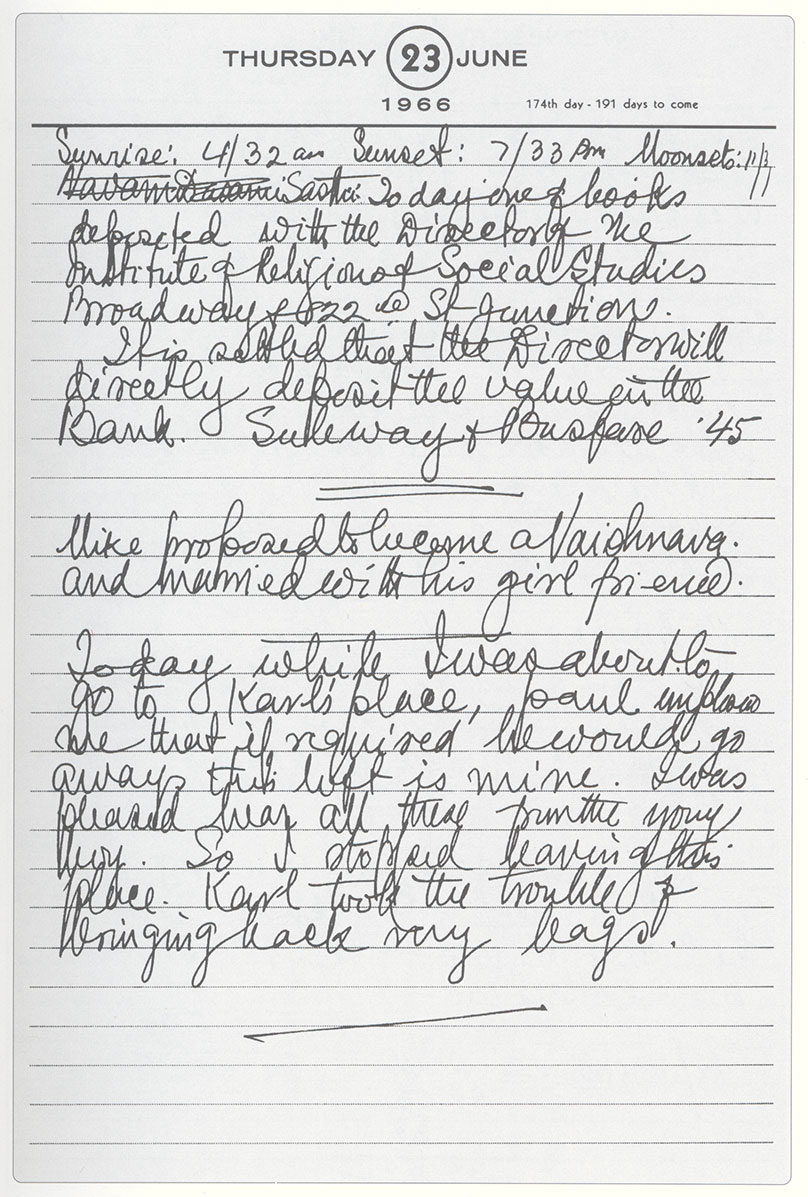 THURSDAY 23 JUNE
1966 174th day - 191 days to come
Sunrise: 4/32 am Sunset: 7/33 Pm Moonset:
Today one of books
deposited with the Director of the
Institute of Religion of Social Studies
Broadway & St Junction.
It is settled that the Director will
directly deposit the value in the
Bank. Subway & Busfare '45
Mike proposed to become a Vaishnava.
and married with his girl friend.
Today while I was about to
go to Karl's place, paul
me that if required he would go
away this loft is mine. I was
pleased hear all these from the young
boy. So I stopped leaving this
place. Karl took the trouble of
bringing back my bags.